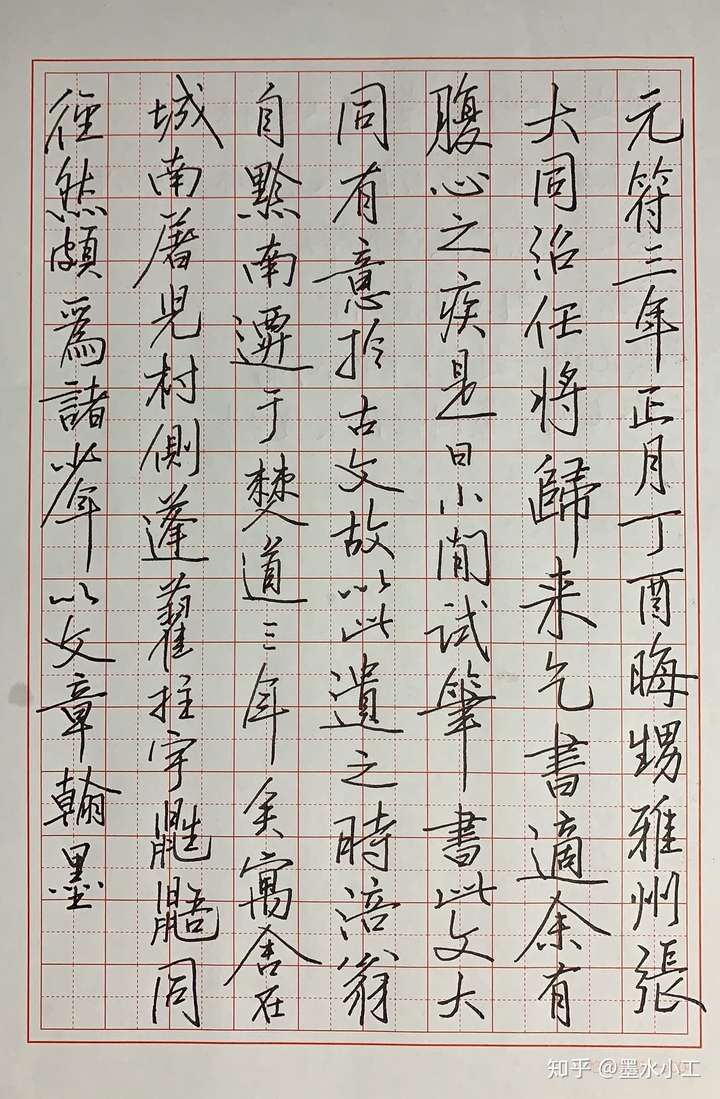 元符三年正月丁酉晦甥雅州張
大同治任將歸来乞書適余有
腹心之疾是日小閒試筆書此文大
同有意於古文故以此遺之時涪翁
自黔南遷于僰道三年矣寓舍在
城南屠兒村側蓬藋拄宇鼪鼯同
徑然頗爲諸少年以文章翰墨
知乎 @墨水小工